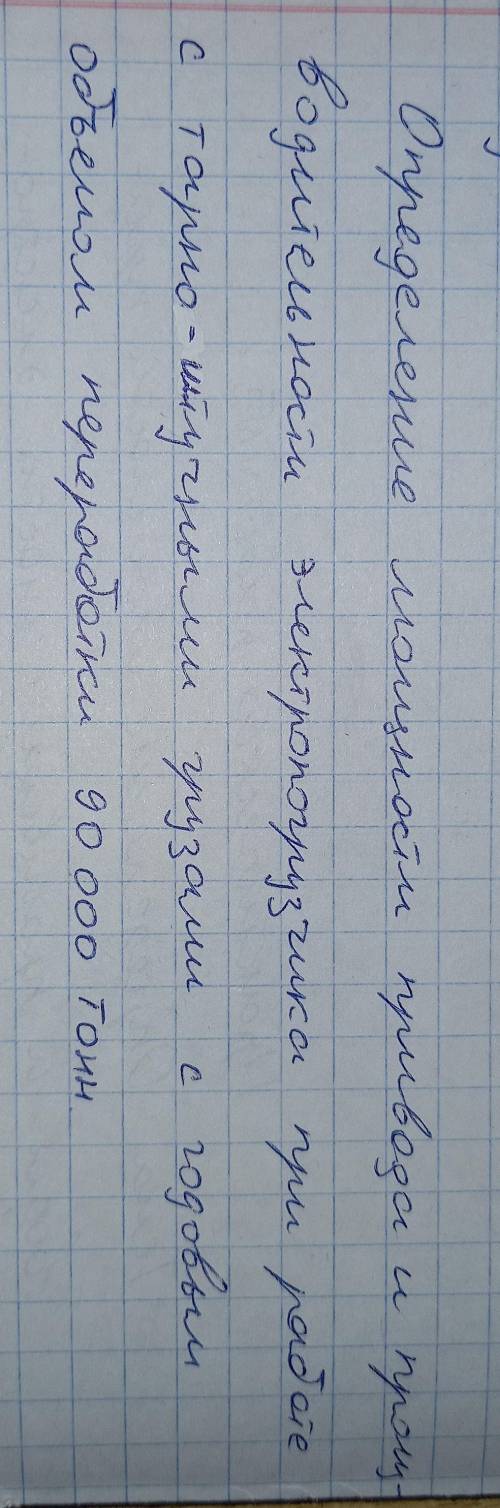 Определение мощности привода и произ-
водительности электропогрузчика при работе
с тарно-штучными грузами с годовым
объемом переработки 90 000 тонн.